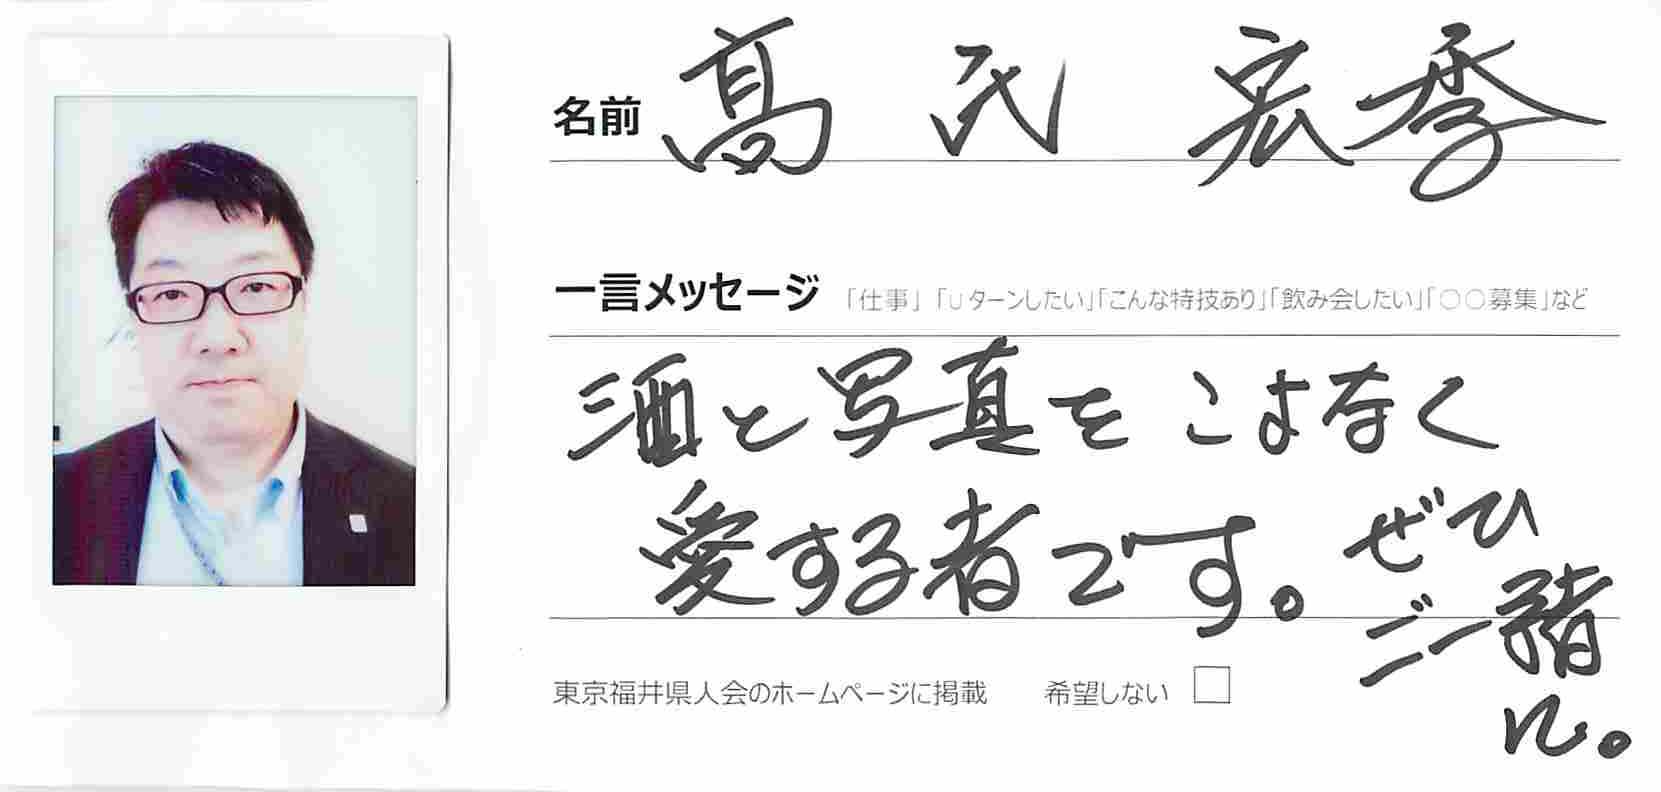 名前 髙氏 宏季
一言メッセージ 「仕事」「Uターンしたい」「こんな特技あり」「飲み会したい」「〇〇募集」など
酒と写真をこよなく
愛する者です。ぜひ
ご一緒に。
東京福井県人会のホームページに掲載 希望しない □